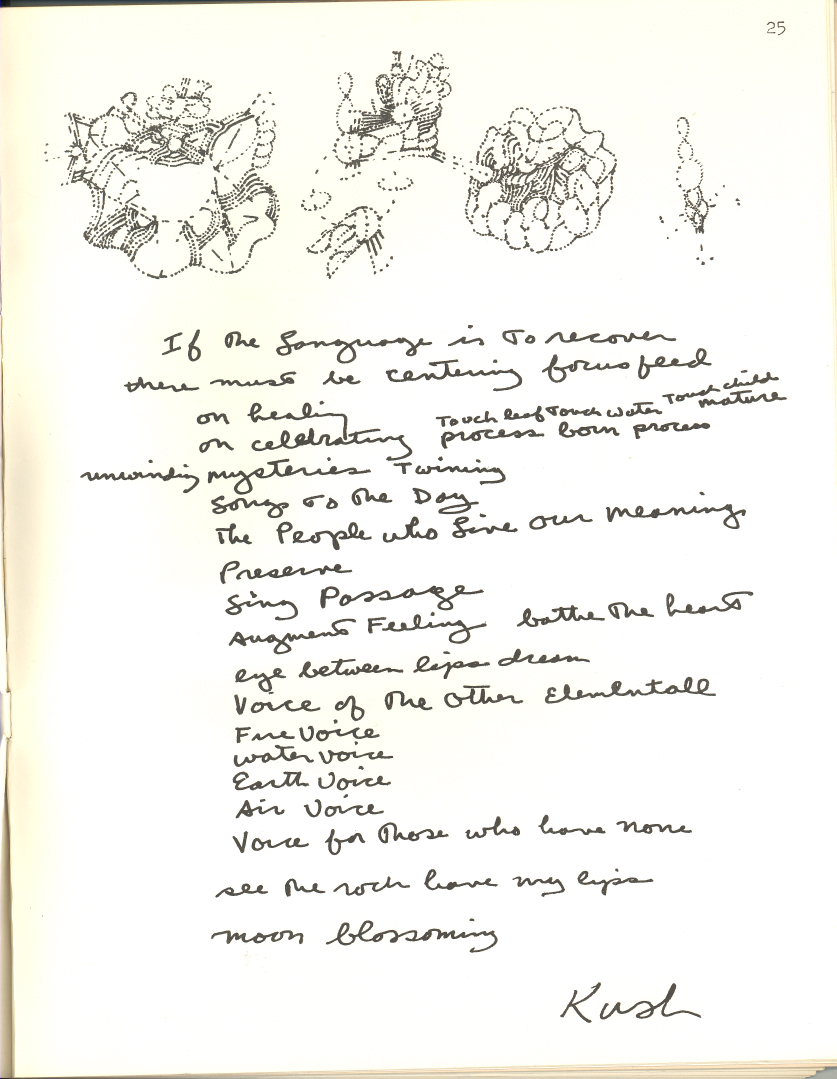 25
If the Language is To recover
there must be centering focus feed
on healing
Touch leaf Touch water Touch child
on celebrating process born process mature
unwinding mysteries Twining
Songs To The Day
The People who Live our meanings
Preserve
Sing Passage
Augment Feeling bathe The heart
eye between lips dream
Voice of The Other Elementall
Fire Voice
water voice
Earth Voice
Air Voice
Voice for Those who have none
see The rock have my lips
moon blossoming
Kush